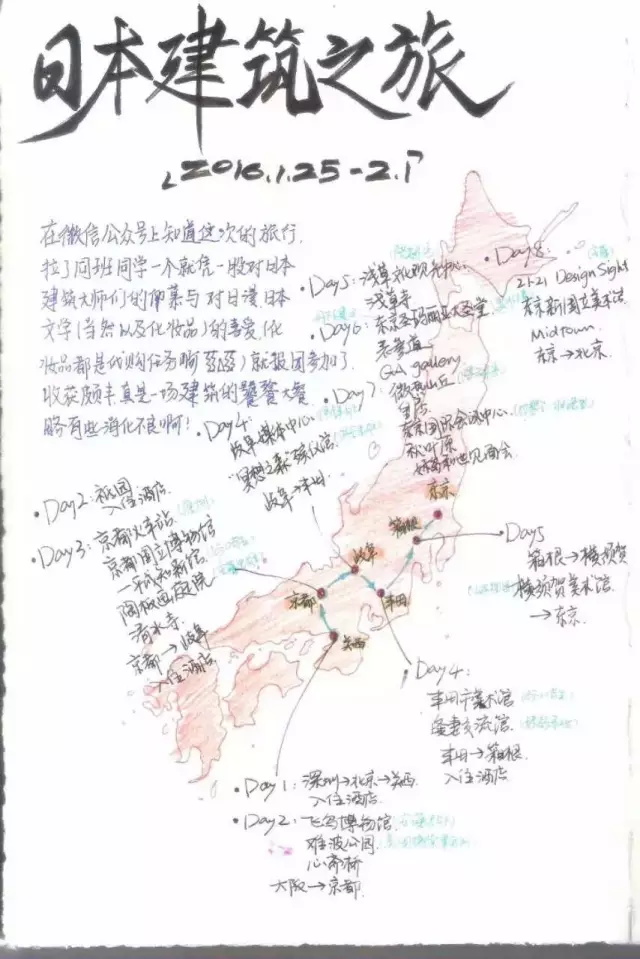 日本建筑之旅
「2016.1.25-2.1」
在微信公众号上知道这次的旅行.
拉了同班同学一个就凭一股对日本
建筑大师们的仰慕与对日漫日本
文学(当然以及化妆品)的喜爱.(化
妆品都是代购任务啊)就报团参加了.
收获颇丰真是一场建筑的饕餮大餐
略有些消化不良啊!
·Day5:浅草文化观光中心.
浅草寺
·Day6:东京圣玛丽亚大圣堂
表参道
GA gallery
·Day7:
东京国际会议中心.
秋叶原
·Day8:
21-21 Design Sight
东京新国立美术馆
Midtown.
东京→北京.
·Day4:
岐阜媒体中心.
"冥想之森"殡仪馆.
岐阜→丰田
·Day2:祇园.
入住酒店.
·Day3:京都火车站.
京都国立博物馆
陶板画庭院
清水寺.
京都→岐阜
入住酒店.
东京
箱根
岐阜
京都
丰田
关西
Day5
箱根→横须贺
横须贺美术馆
→东京.
·Day4
丰田市美术馆
逢妻交流馆.
丰田→箱根.
入住酒店
·Day1:深圳→北京→关西.
入住酒店.
·Day2:飞鸟博物馆.
难波公园.
心斋桥
大阪→京都.